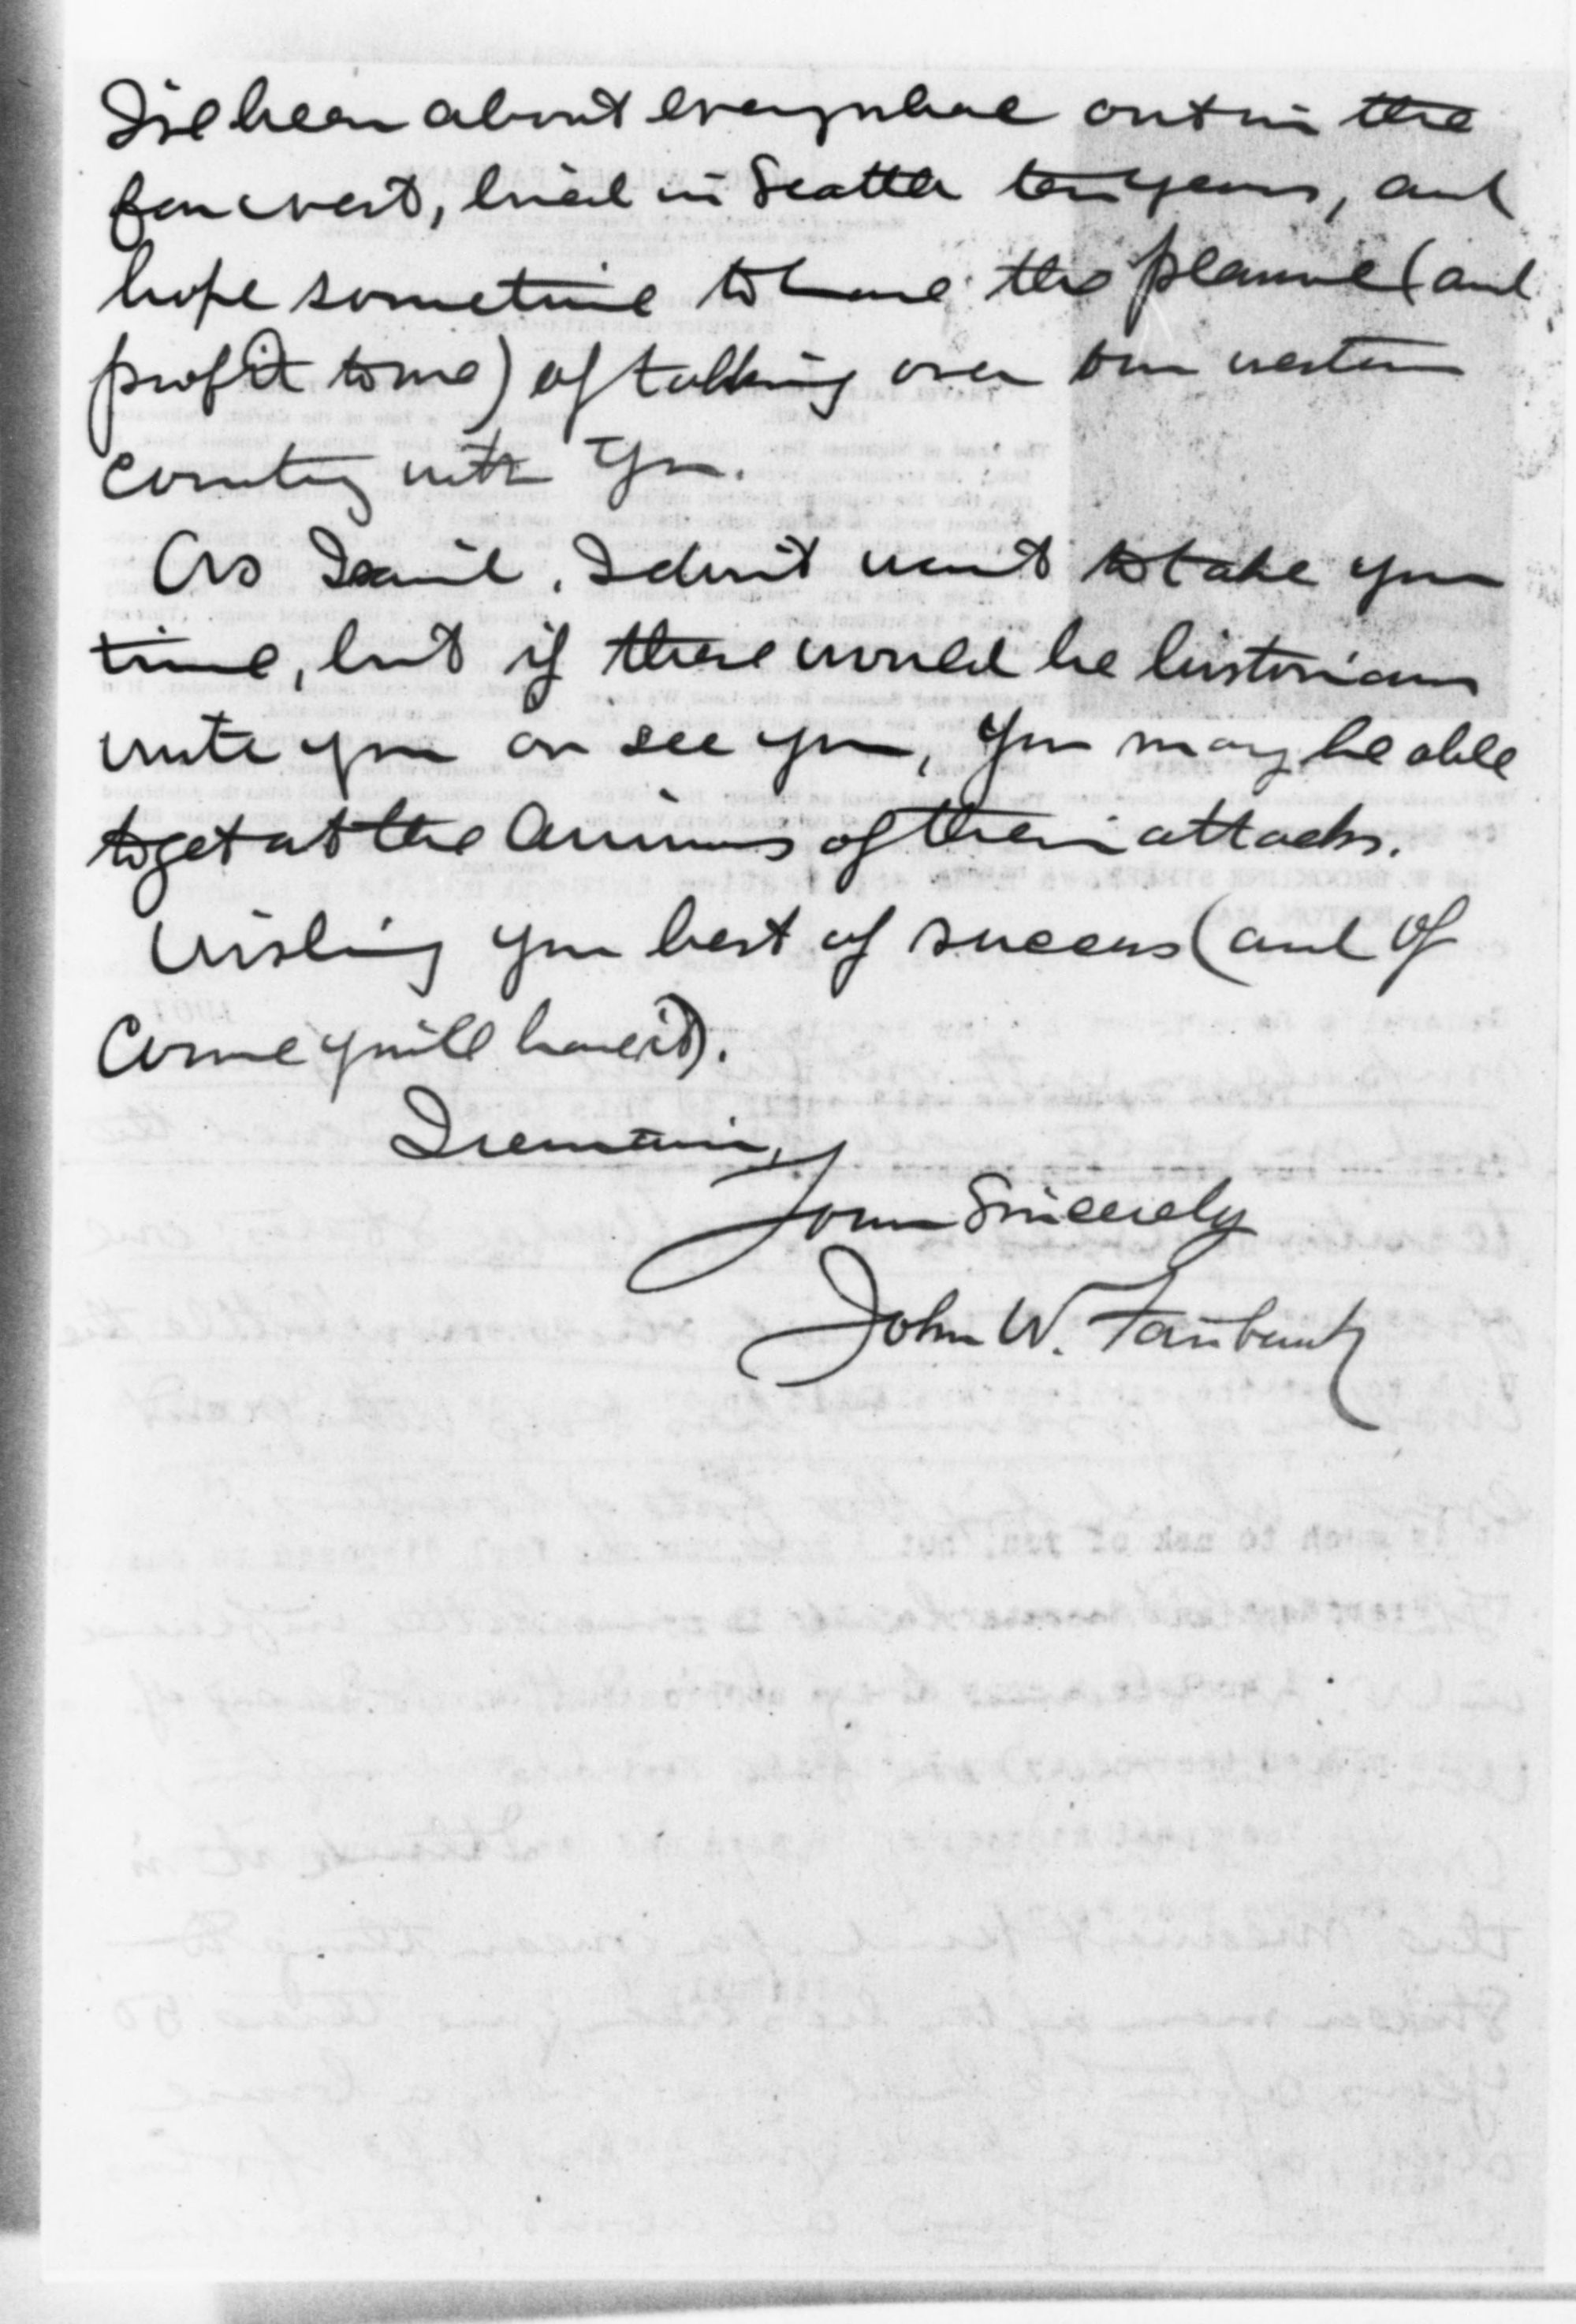 I've been about everywhere out in the
far west, lived in Seattle ten years, and
hope sometime to have the pleasure (and
profit to me) of talking over our western
country with you.
As I said, I don't want to take your
time, but if these would be historians
write you or see you, you may be able
to get at the animus of their attacks.
Wishing you best of success (and of
course you'll have it).
I remain,
Yours Sincerely
John W. Fairbank